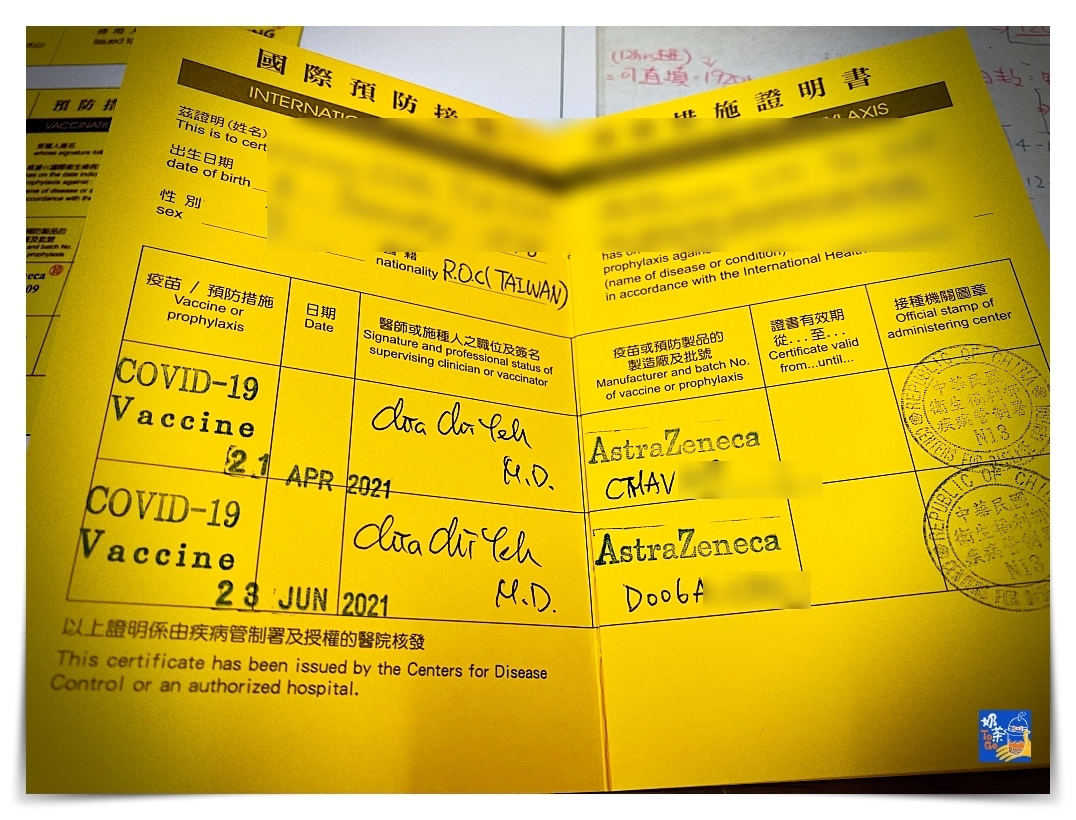 國際預防接
措施證明書
INTERNATIO
YLAXIS
茲證明(姓名)
This is to cert
出生日期
date of birth
性別
sex
籍
nationality R.O.C(TAIWAN)
prophylaxis agains
(name of disease or condition)
in accordance with the International Health
疫苗 / 預防措施
Vaccine or
prophylaxis
日期
Date
醫師或施種人之職位及簽名
Signature and professional status of
supervising clinician or vaccinator
疫苗或預防製品的
製造廠及批號
Manufacturer and batch No.
of vaccine or prophylaxis
證書有效期
從...至...
Certificate valid
from...until...
接種機關圖章
Official stamp of
administering center
COVID-19
Vaccine
21 APR 2021
M.D.
AstraZeneca
CTMAV
REPUBLIC OF CHINA
中華民國
衛生福利部
疾病管制署
N13
COVID-19
Vaccine
23 JUN 2021
M.D.
AstraZeneca
D006A
REPUBLIC OF CHINA
中華民國
衛生福利部
疾病管制署
N13
以上證明係由疾病管制署及授權的醫院核發
This certificate has been issued by the Centers for Disease
Control or an authorized hospital.
預防措
VACCINATIO
(12hrs班)
奶茶
ToGo